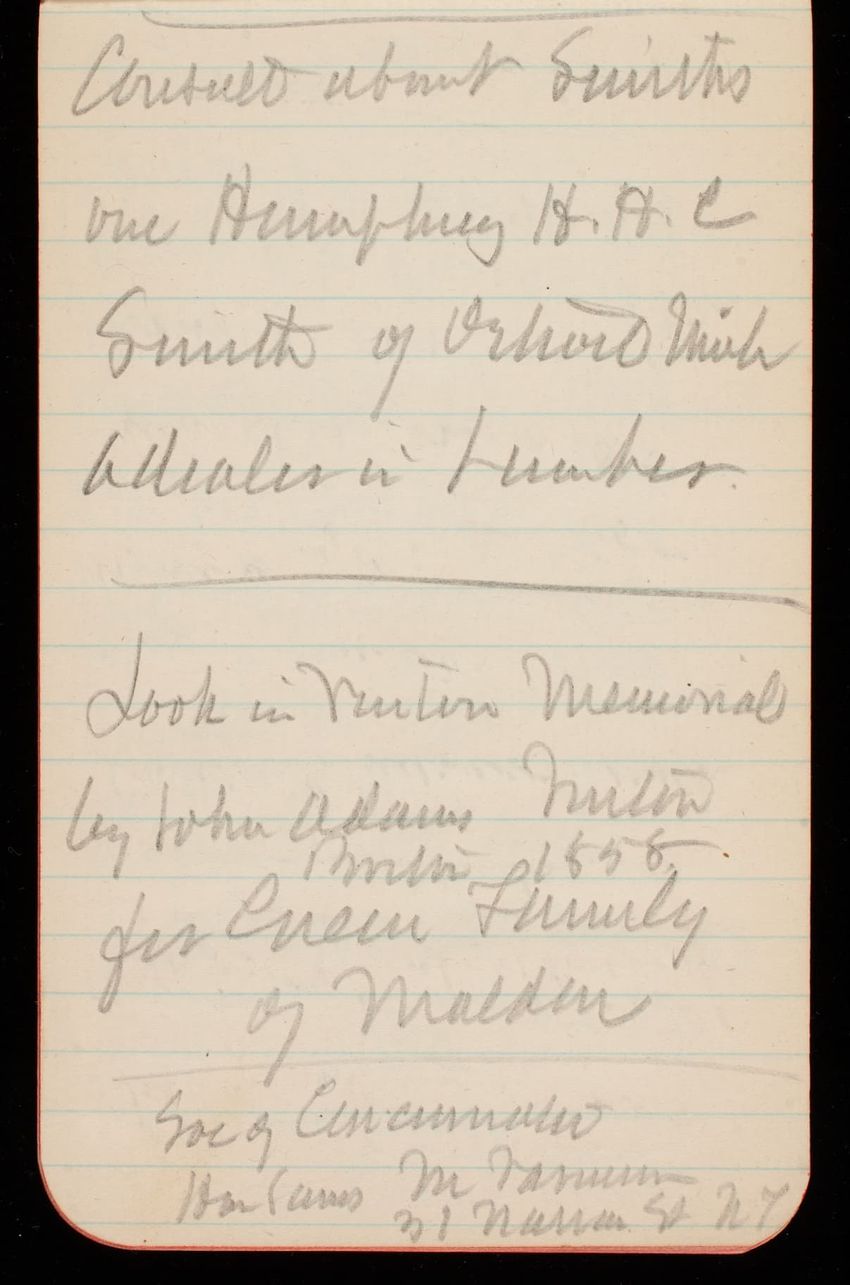 Consult about Smiths
one Humphrey H. H. C
Smith of Detroit Mich
a dealer in Lumber.
Look in Vinton Memorial
by John Adams Vinton
Boston 1858
for Green Family
of Malden
Soc of Cincinnati
Hon James M Varnum
31 Nassau St N Y